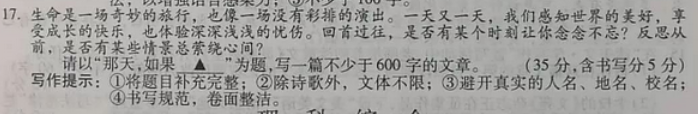 法，以增强语言感染力；③不少于100字。
17. 生命是一场奇妙的旅行，也像一场没有彩排的演出。一天又一天，我们感知世界的美好，享
受成长的快乐，也体验深深浅浅的忧伤。回首过往，是否有某个时刻让你念念不忘？反思从
前，是否有某些情景总萦绕心间？
请以“那天，如果 ▲ ”为题，写一篇不少于600字的文章。 （35分，含书写分5分）
写作提示：①将题目补充完整；②除诗歌外，文体不限；③避开真实的人名、地名、校名；
④书写规范，卷面整洁。